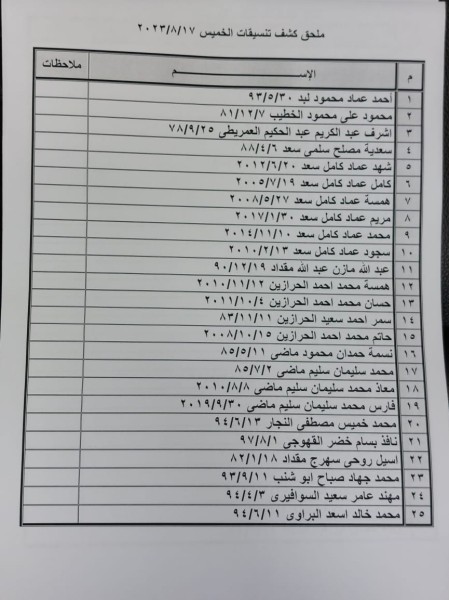 ملحق كشف تنسيقات الخميس ٢٠٢٣/٨/١٧
م الإســـــم ملاحظات
١ احمد عماد محمود لبد ٩٣/٥/٣٠
٢ محمود على محمود الخطيب ٨١/١٢/٧
٣ اشرف عبد الكريم عبد الحكيم العمريطى ٧٨/٩/٢٥
٤ سعدية مصلح سلمى سعد ٨٨/٤/٦
٥ شهد عماد كامل سعد ٢٠١٢/٦/٢٠
٦ كامل عماد كامل سعد ٢٠٠٥/٧/١٩
٧ همسة عماد كامل سعد ٢٠٠٨/٥/٢٧
٨ مريم عماد كامل سعد ٢٠١٧/١/٣٠
٩ محمد عماد كامل سعد ٢٠١٤/١١/١٠
١٠ سجود عماد كامل سعد ٢٠١٠/٢/١٣
١١ عبد الله مازن عبد الله مقداد ٩٠/١٢/١٩
١٢ همسة محمد احمد الحرازين ٢٠١٠/١١/١٢
١٣ حسان محمد احمد الحرازين ٢٠١١/١٠/٤
١٤ سمر احمد سعيد الحرازين ٨٣/١١/١١
١٥ حاتم محمد احمد الحرازين ٢٠٠٨/١٠/١٥
١٦ نسمة حمدان محمود ماضى ٨٥/٥/١١
١٧ محمد سليمان سليم ماضى ٨٥/٧/٢
١٨ معاذ محمد سليمان سليم ماضى ٢٠١٠/٨/٨
١٩ فارس محمد سليمان سليم ماضى ٢٠١٩/٩/٣٠
٢٠ محمد خميس مصطفى النجار ٩٤/٦/١٣
٢١ نافذ بسام خضر القهوجى ٩٧/٨/١
٢٢ اسيل روحى سهرج مقداد ٨٢/١/١٨
٢٣ محمد جهاد صباح ابو شنب ٩٣/٩/١١
٢٤ مهند عامر سعيد السوافيرى ٩٤/٤/٣
٢٥ محمد خالد اسعد البراوى ٩٤/٦/١١